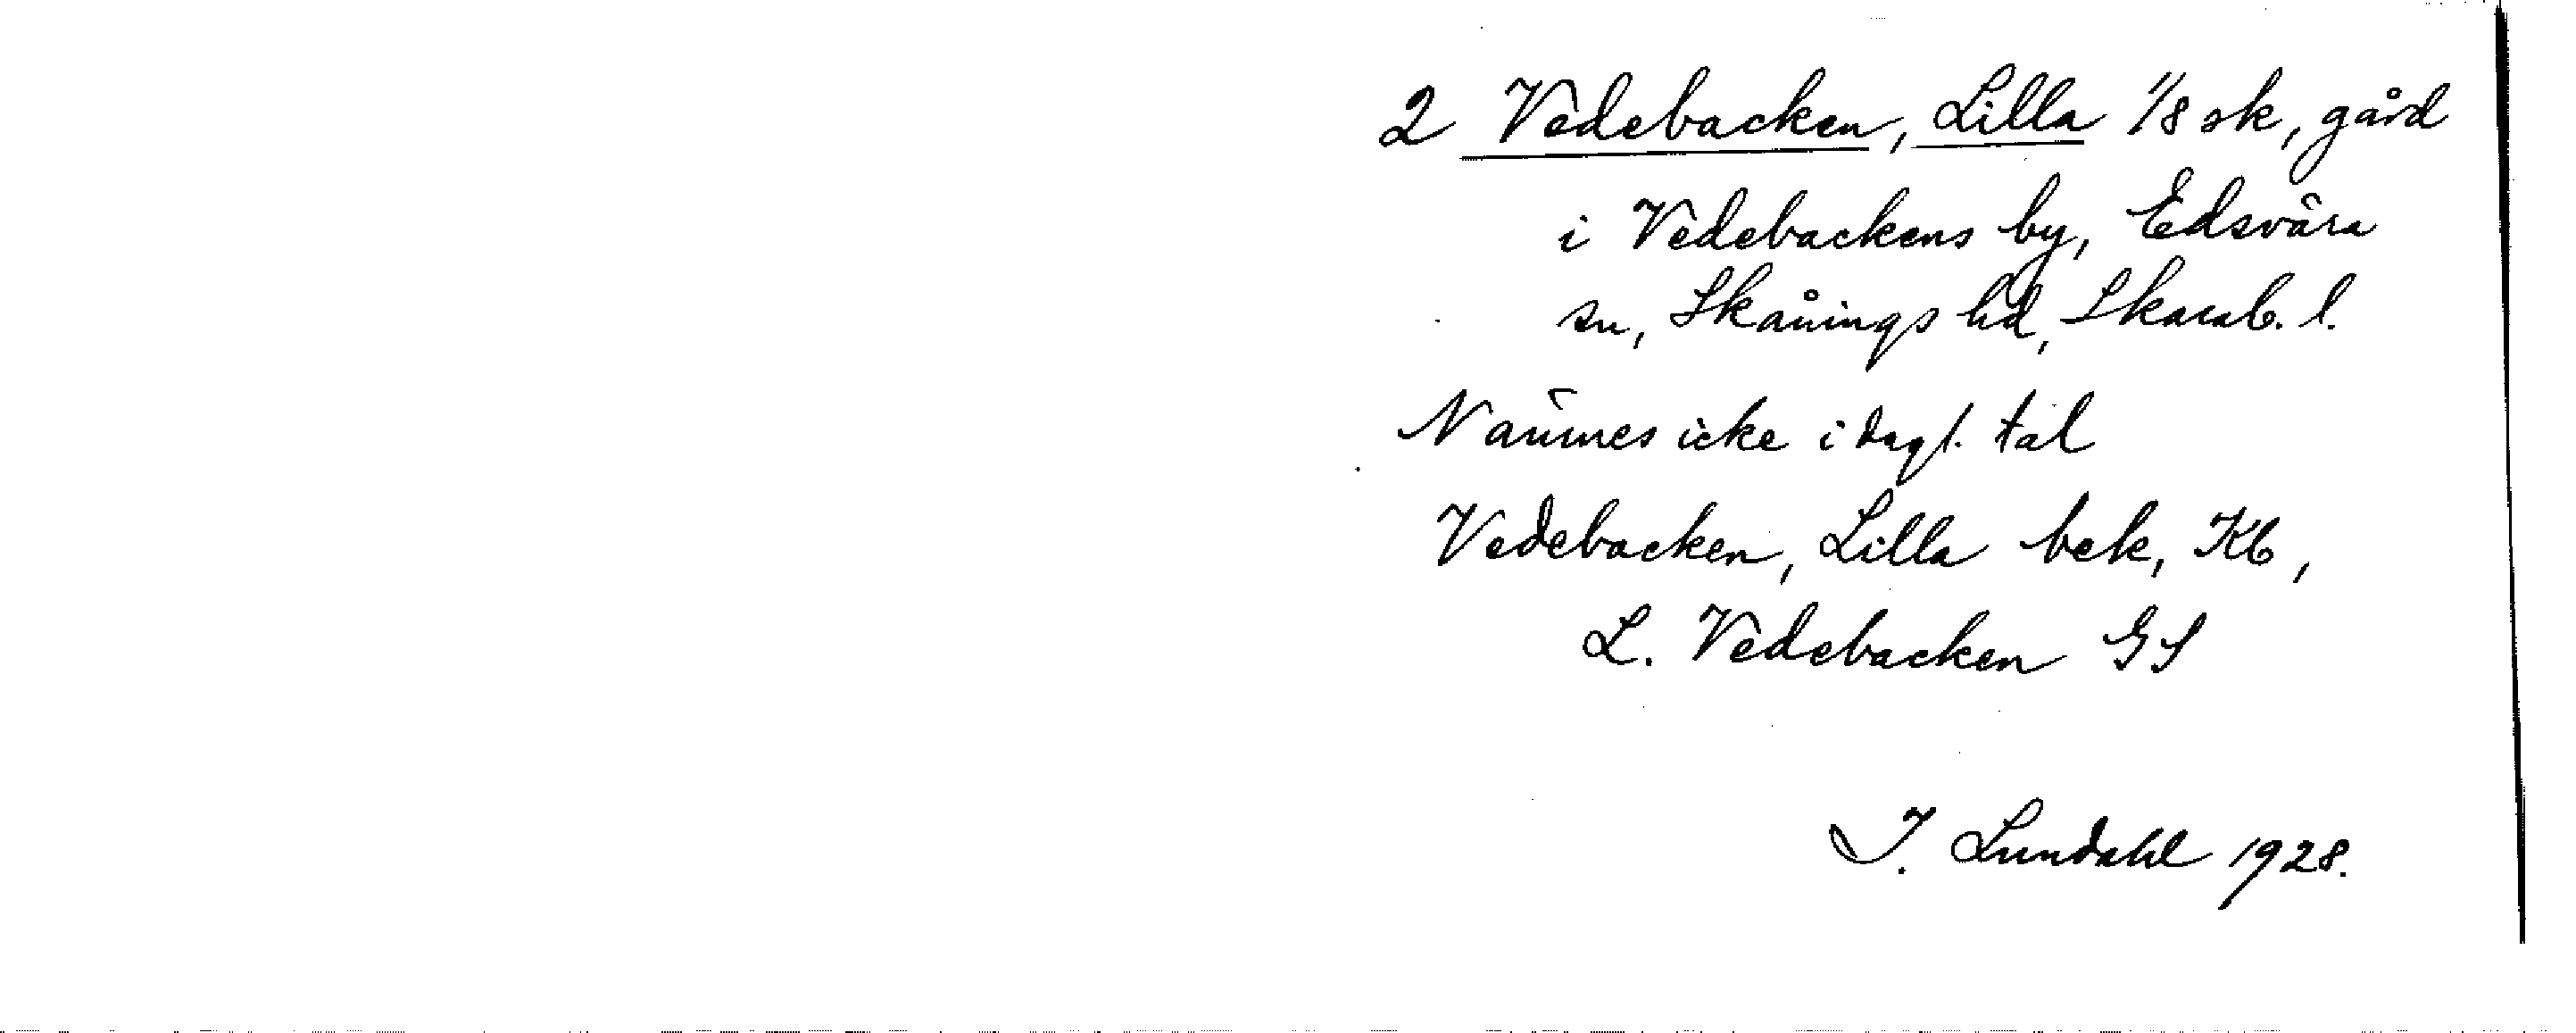 2 Vedebacken, Lilla 1/8 sk, gård
i Vedebackens by, Edsvära
sn, Skånings hd, Skarab. l.
Nämnes icke i dagl. tal
Vedebacken, Lilla bek, Kb,
L. Vedebacken GS
I. Lundahl 1928.